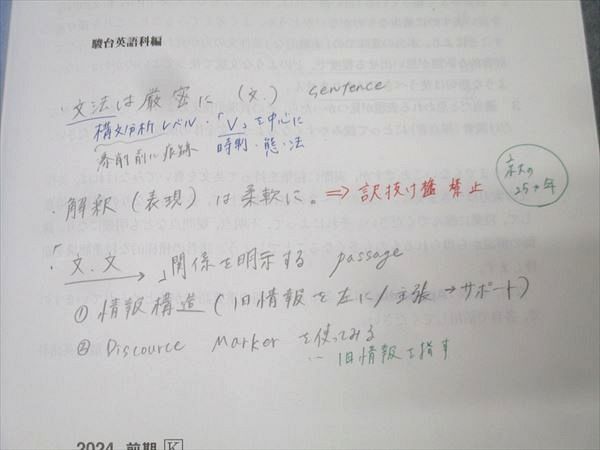 駿台英語科編
・文法は厳密に (文) sentence
構文分析レベル・「V」を中心に
時制・態・法
・解釈 (表現) は柔軟に。⇒ 訳抜け 禁止
25ヶ年
・「文.文」関係を明示する passage
① 情報構造 (旧情報を左に/主張→サポート)
② Discource Marker を使ってみる
… 旧情報を指す
2024 前期 K